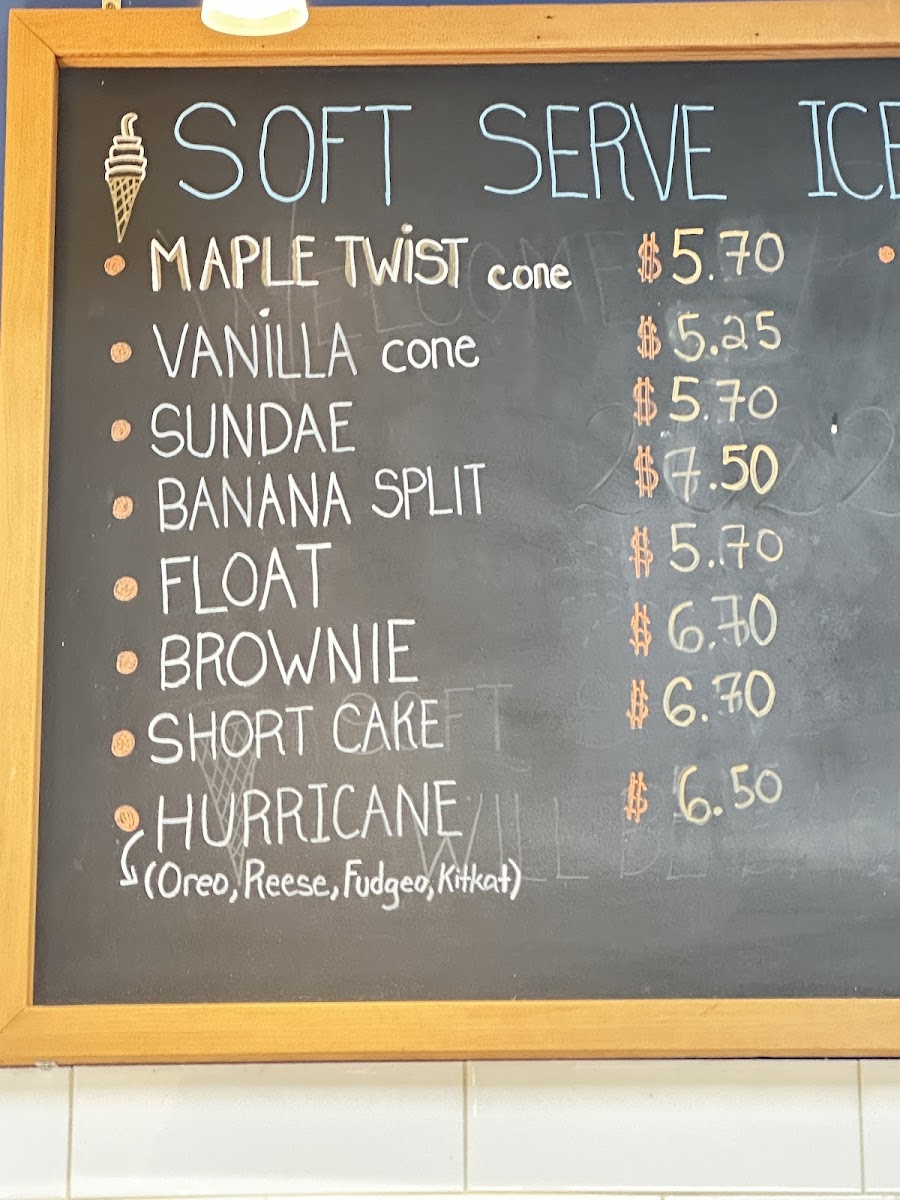 SOFT SERVE ICE
MAPLE TWIST cone $5.70
VANILLA cone $5.25
SUNDAE $5.70
BANANA SPLIT $7.50
FLOAT $5.70
BROWNIE $6.70
SHORT CAKE $6.70
HURRICANE $6.50
(Oreo, Reese, Fudgeo, Kitkat)